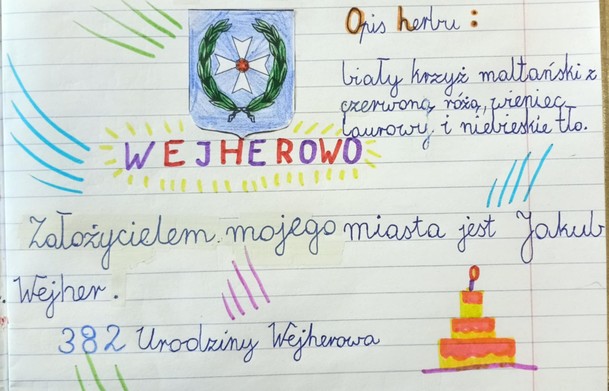 Opis herbu:
biały krzyż maltański z
czerwoną różą, wieniec
laurowy i niebieskie tło.
WEJHEROWO
Założycielem mojego miasta jest Jakub
Wejher.
382 Urodziny Wejherowa